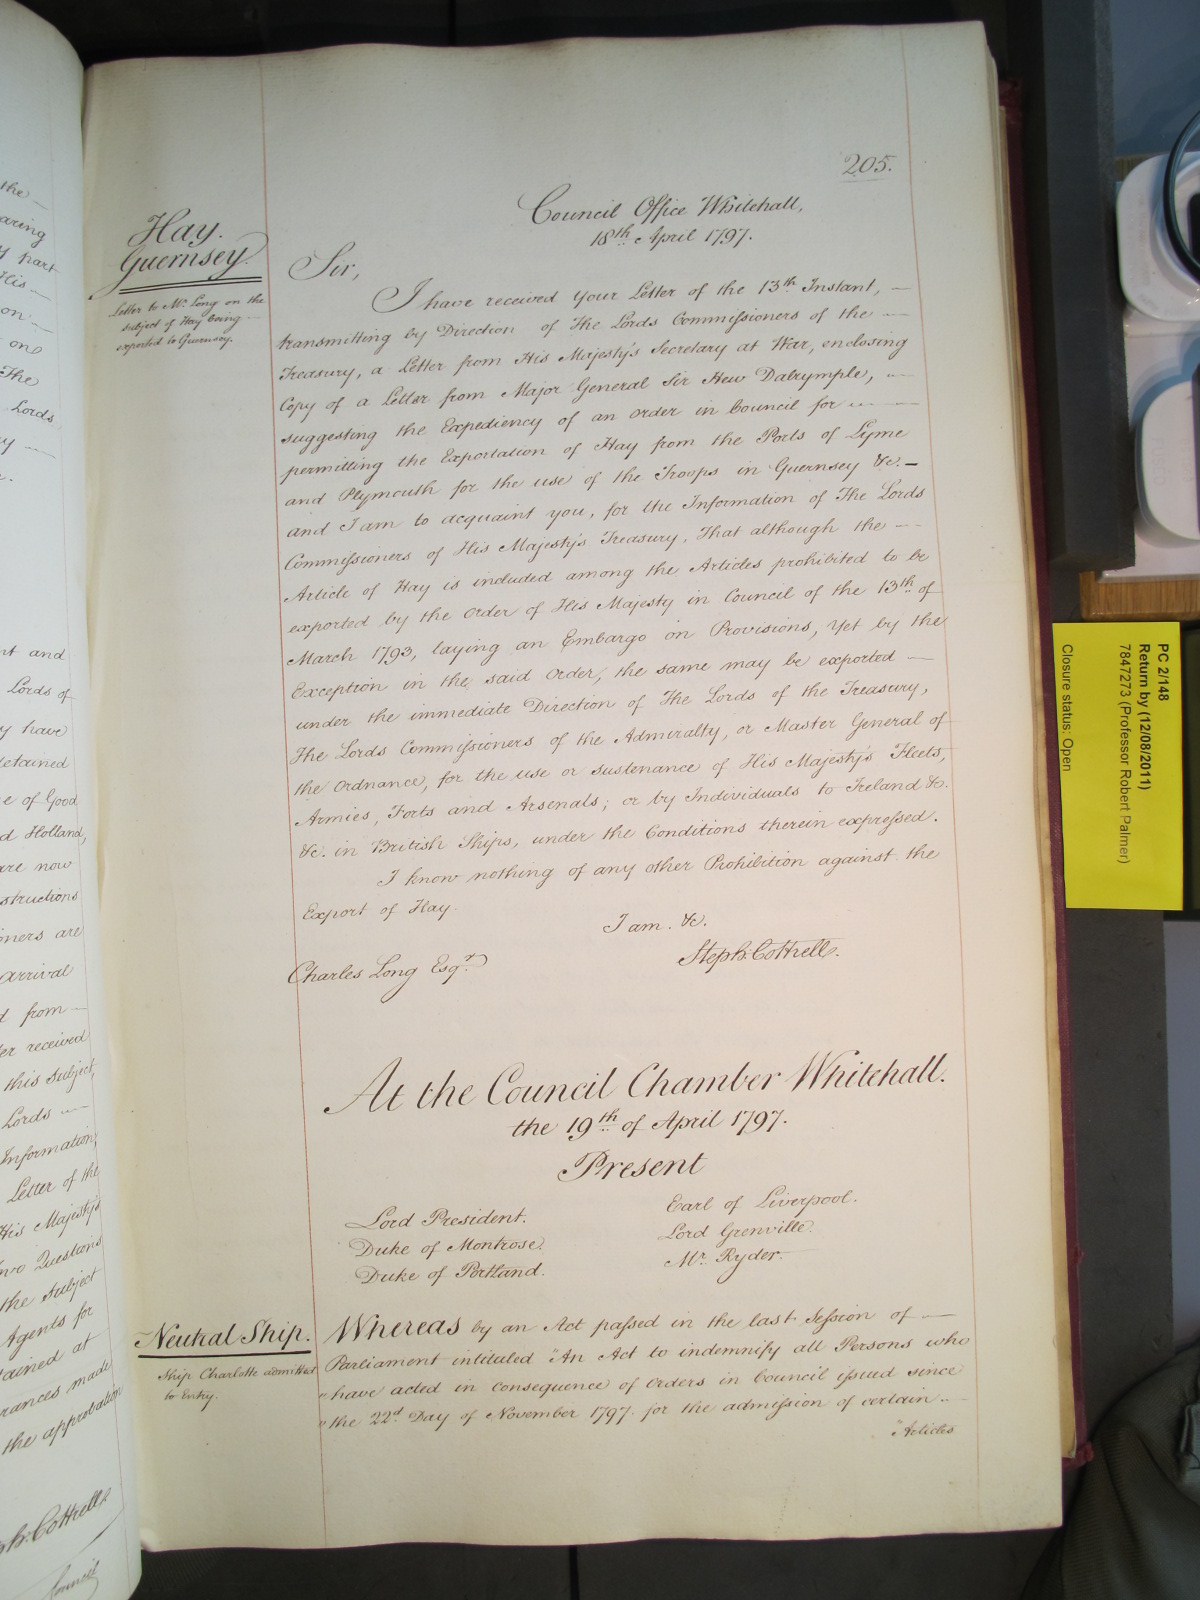 205.
Hay.
Guernsey.
Letter to Mr. Long on the
subject of Hay being
exported to Guernsey.
Council Office Whitehall,
18th. April 1797.
Sir,
I have received your Letter of the 13th Instant, —
transmitting by Direction of The Lords Commissioners of the —
Treasury, a Letter from His Majesty's Secretary at War, enclosing
Copy of a Letter from Major General Sir Hew Dalrymple, —
suggesting the Expediency of an Order in Council for —
permitting the Exportation of Hay from the Ports of Lyme
and Plymouth for the use of the Troops in Guernsey &c. —
and I am to acquaint you, for the Information of The Lords
Commissioners of His Majesty's Treasury, That although the —
Article of Hay is included among the Articles prohibited to be
exported by the Order of His Majesty in Council of the 13th. of
March 1793, laying an Embargo on Provisions, Yet by the
Exception in the said Order, the same may be exported —
under the immediate Direction of The Lords of the Treasury,
The Lords Commissioners of the Admiralty, or Master General of
the Ordnance, for the use or sustenance of His Majesty's Fleets,
Armies, Forts and Arsenals; or by Individuals to Ireland &c.
&c. in British Ships, under the Conditions therein expressed.
I know nothing of any other Prohibition against the
Export of Hay.
I am. &c.
Steph: Cottrell.
Charles Long Esqr.
At the Council Chamber Whitehall.
the 19th. of April 1797.
Present
Lord President.
Duke of Montrose.
Duke of Portland.
Earl of Liverpool.
Lord Grenville.
Mr. Ryder.
Neutral Ship.
Ship Charlotte admitted
to Entry.
Whereas by an Act passed in the last Session of —
Parliament intituled "An Act to indemnify all Persons who
"have acted in consequence of Orders in Council issued since
"the 22d. Day of November 1797. for the admission of certain —
"Articles
the —
aring
part
His —
on —
one
The
Lords
nt and
Lords of
have
detained
e of Good
d Holland,
are now
structions
oners are
arrival
from —
er received
this subject,
Lords —
Information,
Letter of the
His Majesty's
two Questions
the subject
Agents for
tained at
rances made
the approbation
ph: Cottrell
Council
PC 2/148
Return by (12/08/2011)
7847273 (Professor Robert Palmer)
Closure status: Open